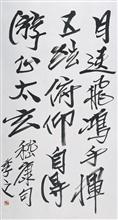 目送飛鴻手揮
五絃俯仰自得
游心太玄嵇康句